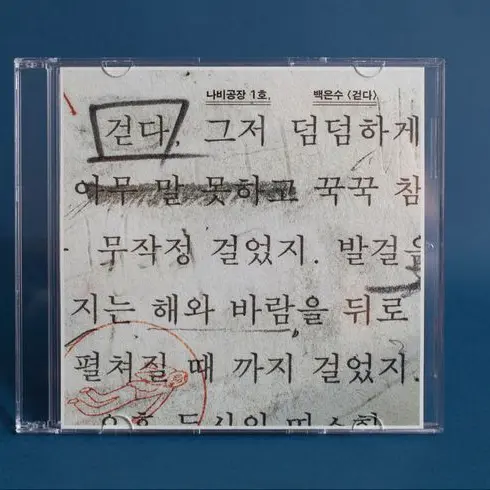 나비공장 1호, 백은수 〈걷다〉
걷다, 그저 덤덤하게
아무 말 못하고 꾹꾹 참
무작정 걸었지. 발걸을
지는 해와 바람을 뒤로
펼쳐질 때 까지 걸었지.